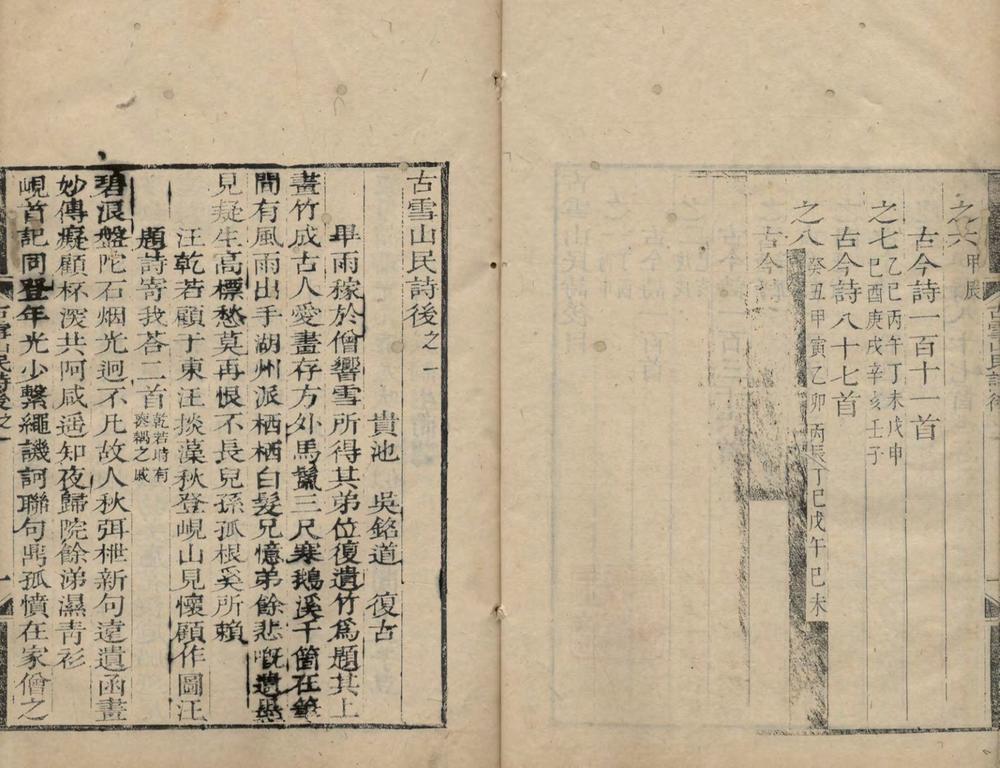 之六甲辰
古今詩一百十一首
之七乙巳丙午丁未戊申己酉庚戌辛亥壬子
古今詩八十七首
之八癸丑甲寅乙卯丙辰丁巳戊午己未
古今
古雪山民詩後之一
貴池 吳銘道 復古
畢雨稼於僧響雪所得其弟位復遺竹為題其上
畫竹成古人愛畫存方外馬鬣三尺寒鵝溪千箇在
間有風雨出手湖州派栖栖白髮兄憶弟餘悲嘅遺墨
見凝生高標愁莫再恨不長兒孫孤根奚所賴
汪乾若顧于東汪掞藻秋登峴山見懷顧作圖汪
題詩寄我荅二首乾若時有喪耦之戚
碧浪盤陀石烟光迥不凡故人秋弭枻新句遠遺函畫
妙傳癡顧杯深共阿咸遥知夜歸院餘涕濕青衫
峴首記同登年光少繫繩譏訶聯句禼孤憤在家僧之
古雪山民詩後之一